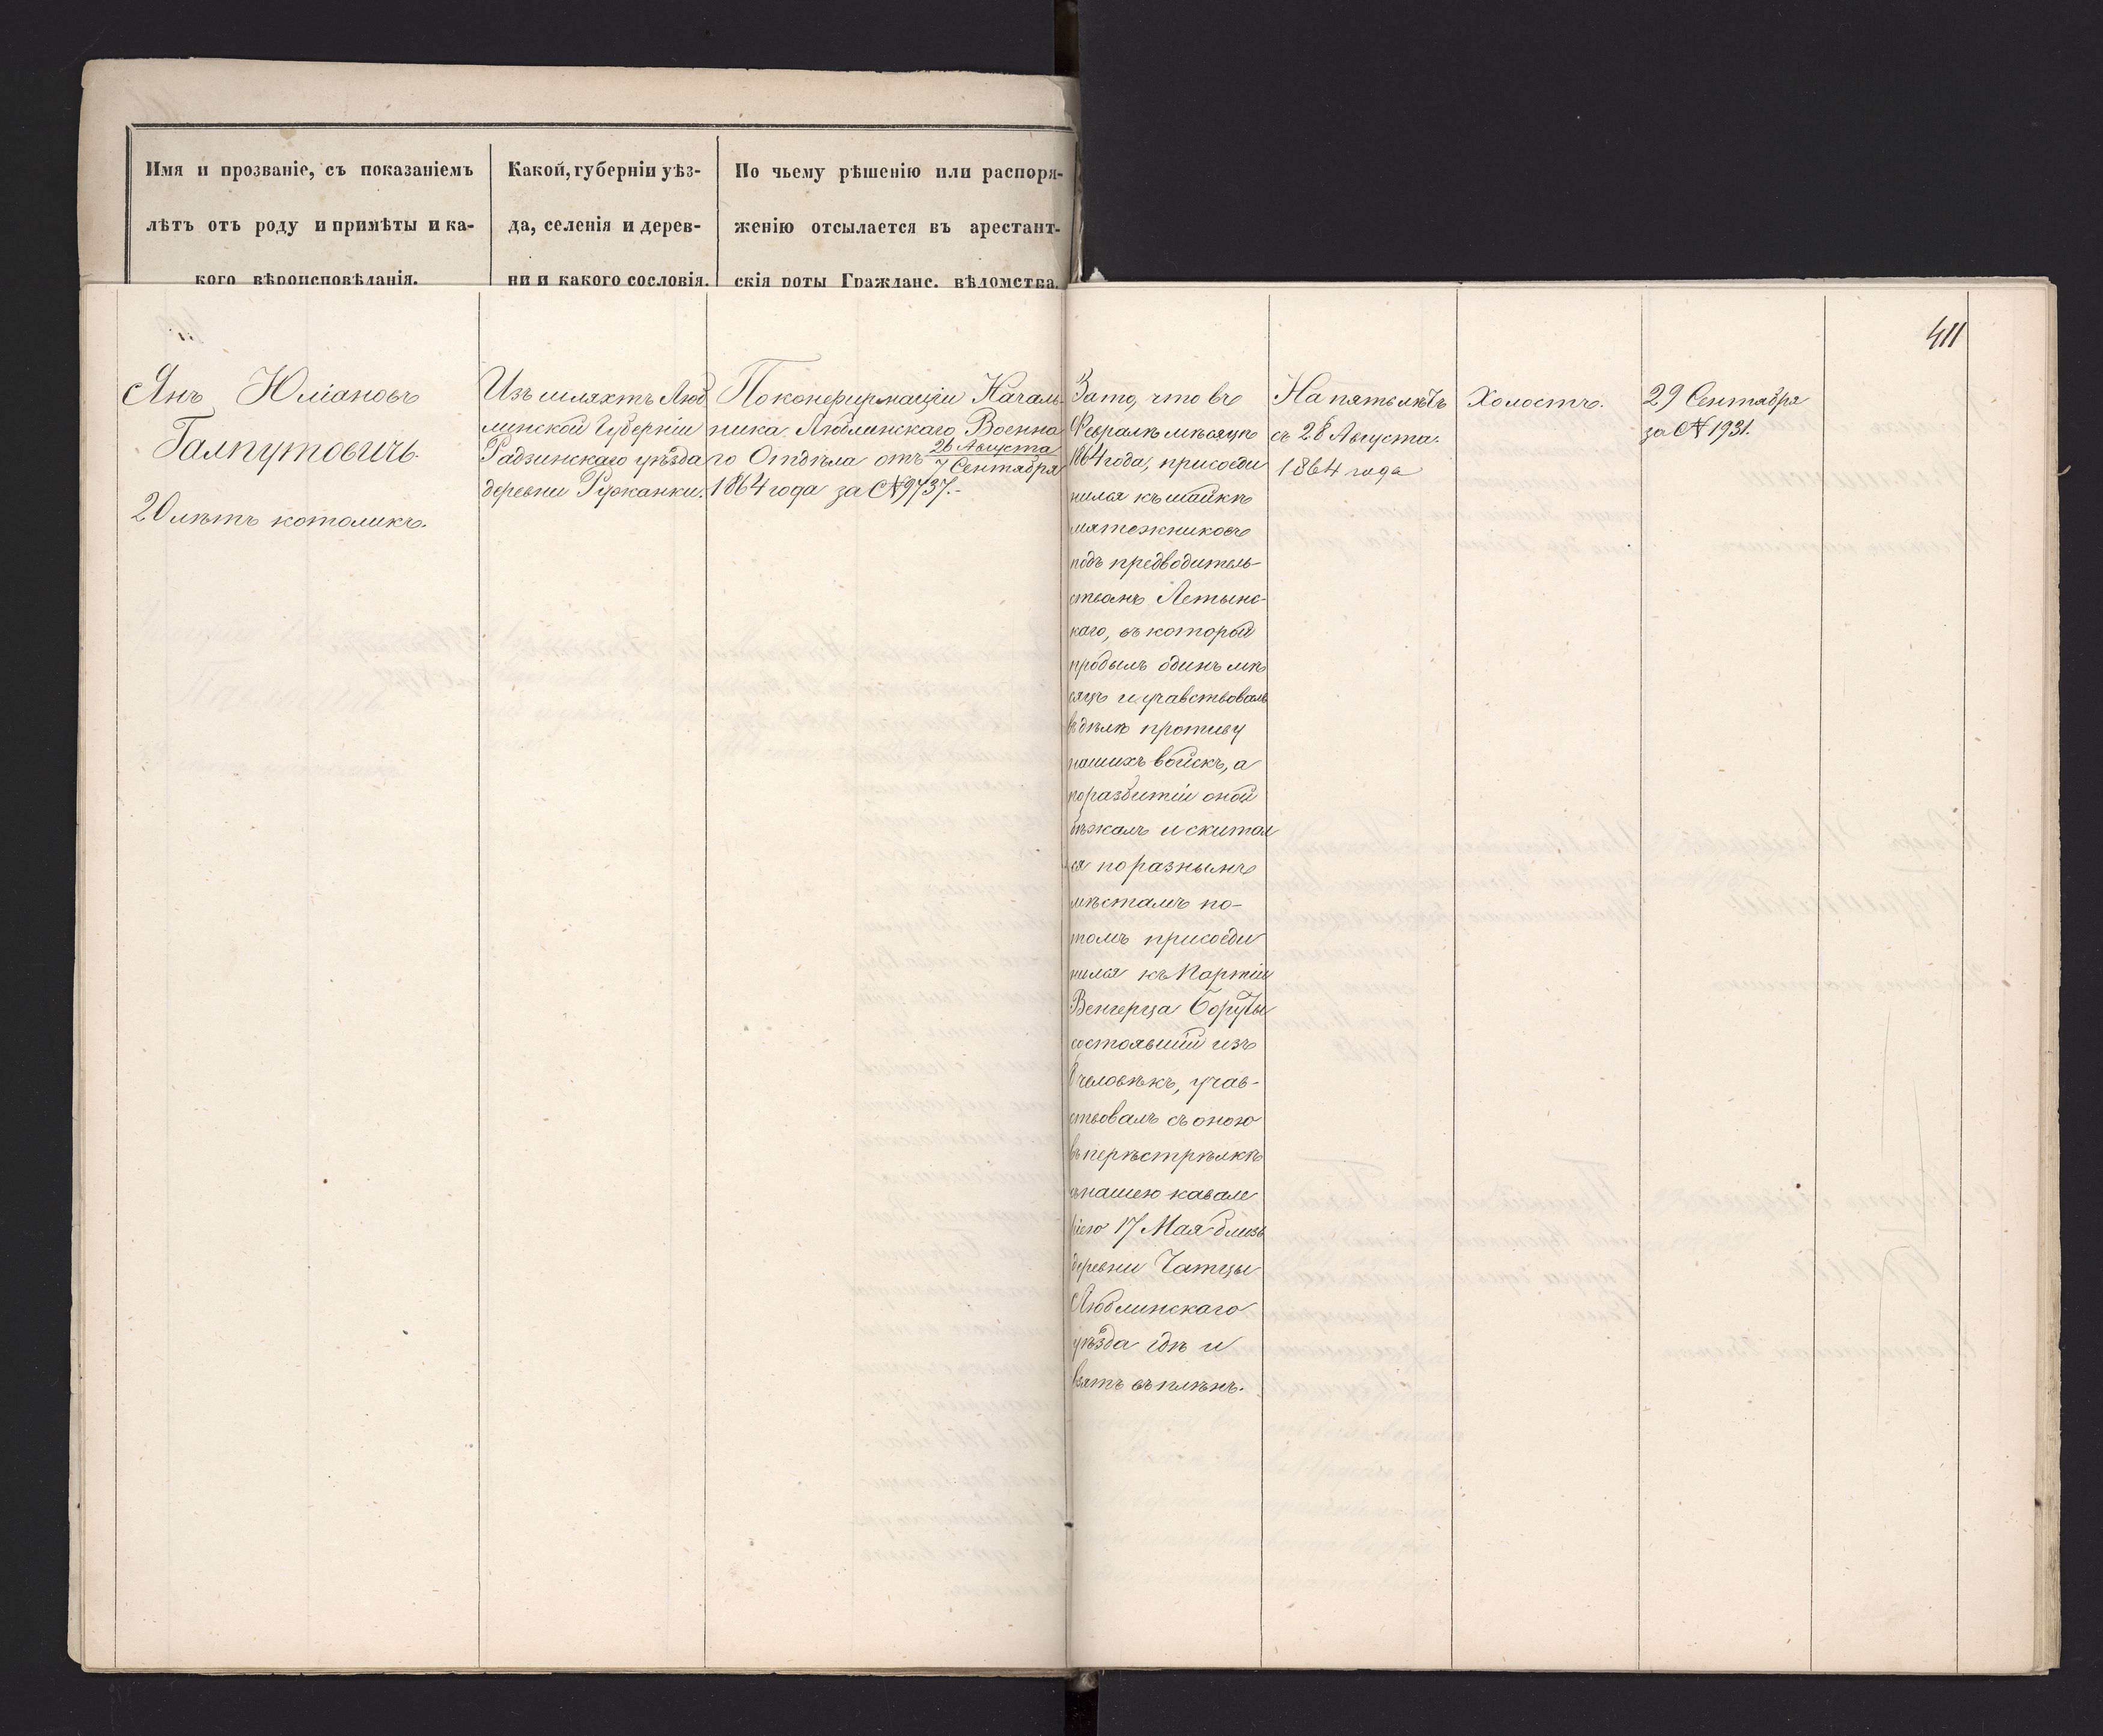 Имя и прозваніе, съ показаніемъ
лѣтъ отъ роду и примѣты и ка-
кого вѣроисповѣданія.
Какой, губерніи уѣз-
да, селенія и дерев-
ни и какого сословія.
По чьему рѣшенію или распоря-
женію отсылается въ арестант-
скія роты Гражданс. вѣдомства.
411
Янъ Юліановъ
Галпутовичъ.
20 лѣтъ католикъ.
Изъ шляхтъ Люб
линской Губерніи
Радзинскаго уѣзда
деревни Ружанки.
По конфирмаціи Началь-
ника Люблинскаго Военна
го Отдѣла отъ 26 Августа
7 Сентября
1864 года за № 9737.-
За то, что въ
Февралѣ мѣсяцѣ
1864 года, присоеди
нился къ шайкѣ
мятежниковъ
подъ предводитель-
ствомъ Летынс-
каго, въ которой
пробылъ одинъ мѣ
сяцъ и учавствовалъ
въ дѣлѣ противу
нашихъ войскъ, а
по разбитіи оной
бѣжалъ и скитал
ся по разнымъ
мѣстамъ по-
томъ присоеди
нился къ Партіи
Венгерца Боруты
состоявшій изъ
8 человѣкъ, учав-
ствовалъ съ оною
въ перѣстрѣлкѣ
съ нашею кавале
ріею 17 Мая близь
деревни Чатцы
Люблинскаго
уѣзда гдѣ и
взятъ въ плѣнъ.
На пять лѣтъ
съ 28 Августа.
1864 года
Холостъ.
29 Сентября
за № 1931.